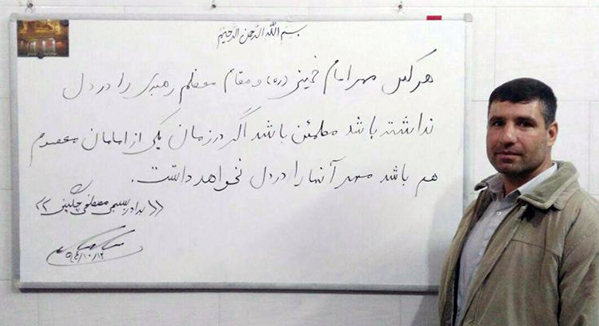 بسم الله الرحمن الرحیم
هر کس مهر امام خمینی (ره) و مقام معظم رهبری را در دل
نداشته باشد مطمئن باشد اگر در زمان یکی از امامان معصوم
هم باشد مهر آنها را در دل نخواهد داشت.
مصطفی